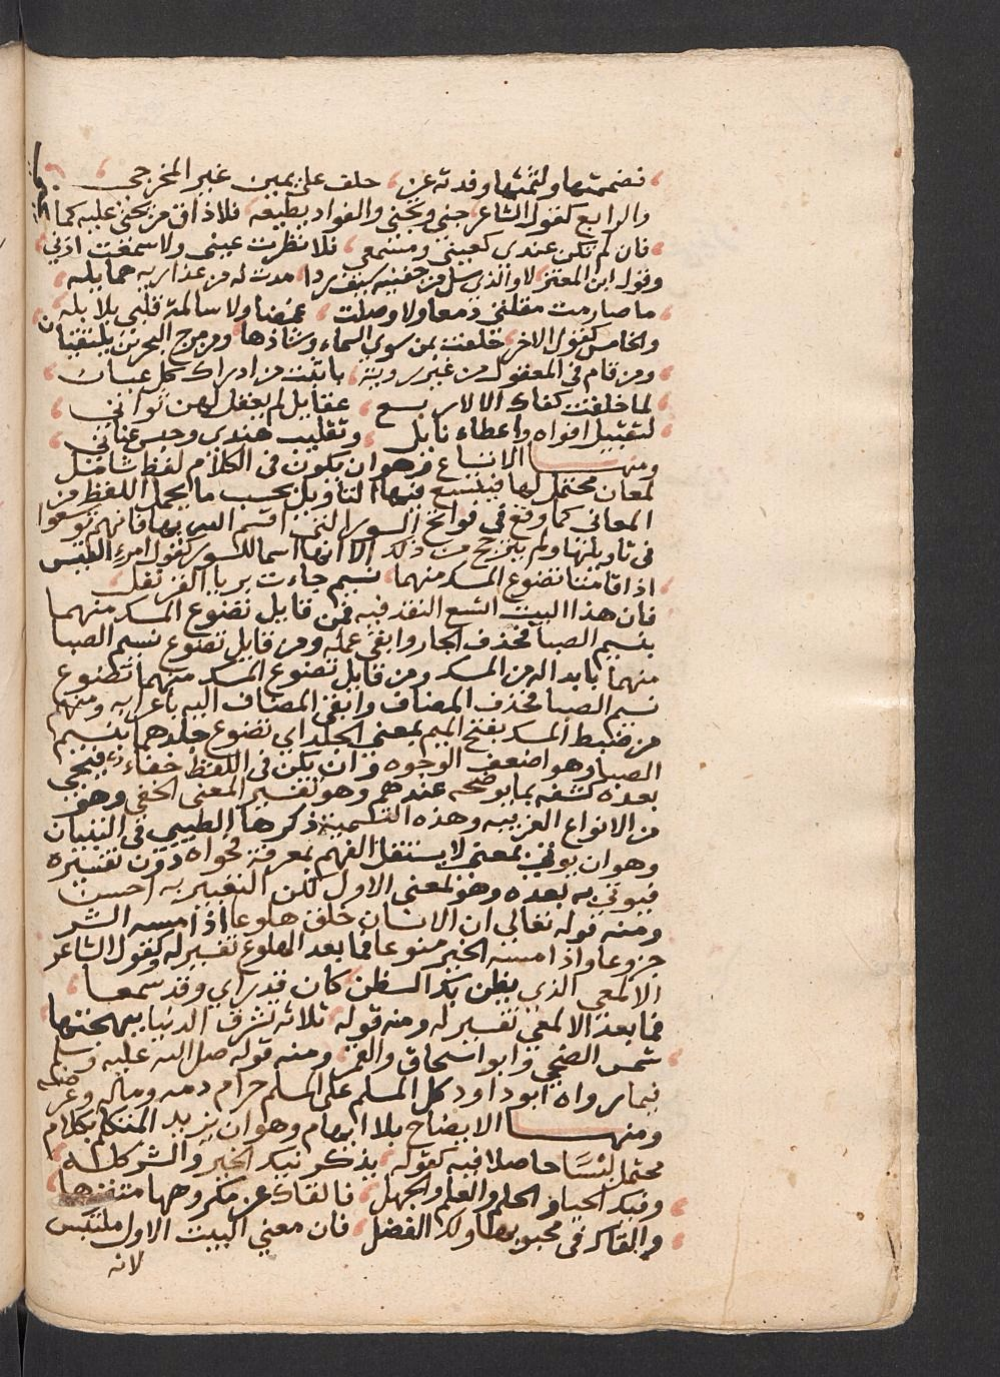 فضممتها ولثمتها وفدته عن حلف علي يمين غير المخرجي
والرابع كقول الشاعر جني ويجني والفواد يطيعه فلا ذاق من يجني عليه كما
فان لم تكن عندي كعيني ومسمعي فلا نظرت عيني ولا سمعت اذني
وقول ابن المعتز لا والذي سل من جفنيه سيف ردا قدت له من عذاريه حمايله
ما صارمت مقلتي دمعا ولا وصلت غمضا ولا سالمت قلبي بلابله
والخامس كقول الاخر حلفت بمن سوي السماء وشادها ومن مرج البحرين يلتقيان
ومن قام في المعقول من غير رويته باثبت من ادراك كل عيان
لما خلقت كفاك الا لاربع عقايل لم يعقل لهن ثواني
لتقبيل افواه واعطاء نايل وتقليب هندي وحبس عناني
ومنها الاتساع وهو ان يكون في الكلام لفظ شامل
لمعان محتمل لها فيتسع فيها التاويل بحسب ما يحمل اللفظ من
المعاني كما وقع في فواتح السور التي اقسم الله بها فانهم توسعوا
في تاويلها ولم يترجح من ذلك الا انها اسما للسور كقول امرء القيس
اذا قامتا تضوع المسك منهما نسيم جاءت بريا القرنفل
فان هذا البيت اتسع النقد فيه فمن قايل تضوع المسك منهما
بنسيم الصبا فحذف الجار وابقي عمله ومن قايل تضوع نسيم الصبا
منهما بابداله من المسك ومن قايل تضوع المسك منهما تضوع
نسيم الصبا فحذف المضاف وابقي المضاف اليه باعرابه ومنهم
من ضبط المسك بفتح الميم بمعني الجلد اي تضوع جلدهما بنسيم
الصبا وهو اضعف الوجوه وان يكن في اللفظ خفاء فيجي
بعده كشفه بما يوضحه عندهم وهو تفسير المعني الخفي وهو
من الانواع الغريبه وهذه التسمية ذكرها الطيبي في التبيان
وهو ان يوتي بمعني لا يستقل الفهم بمعرفة فحواه دون تفسيره
فيوتي به بعده وهو لمعني الاول لكن التعبير به احسن
ومنه قوله تعالي ان الانسان خلق هلوعا اذا مسه الشر
جزوعا واذا مسه الخير منوعا فما بعد الهلوع تفسير له وكقول الشاعر
الالمعي الذي يظن بك الظن كان قد راي وقد سمعا
فما بعد الالمعي تفسير له ومنه قوله ثلاثة تشرق الدنيا ببهجتها
شمس الضحي وابو اسحاق والقمر ومنه قوله صلى الله عليه وسلم
فيما رواه ابو داود كل المسلم علي المسلم حرام دمه وماله وعرضه
ومنها الايضاح بلا ابهام وهو ان يزيد المتكلم بكلام
محتمل لبسا حاصلا فيه كقوله يذكر نيك الخير والشر كله
وفيك الحيا والحلم والعلم والجهل فالقاك عن مكروهها متنزها
والقاك في محبوبها ولك الفضل فان معني البيت الاول ملتبس
لانه